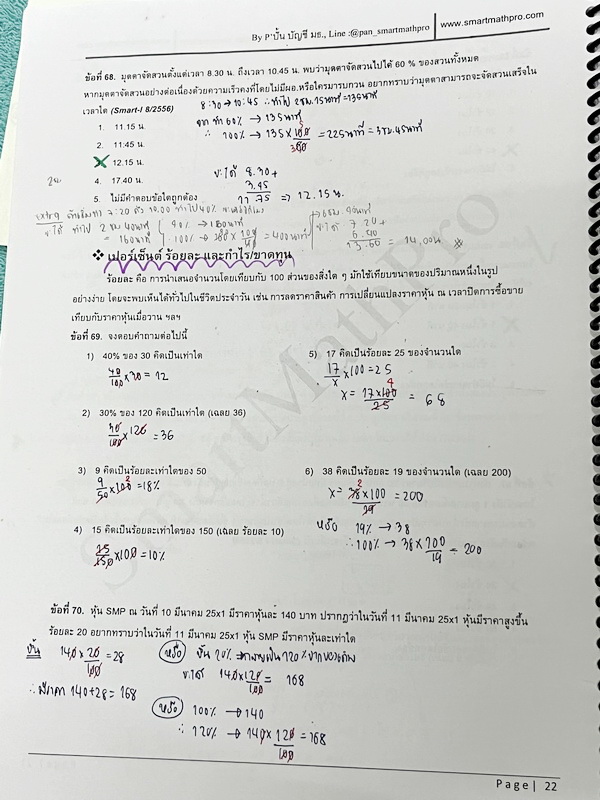 By P'ปั้น บัญชี มธ., Line :@pan_smartmathpro www.smartmathpro.com
ข้อที่ 68. มุดตาจัดสวนตั้งแต่เวลา 8.30 น. ถึงเวลา 10.45 น. พบว่ามุดตาจัดสวนไปได้ 60 % ของสวนทั้งหมด
หากมุดตาจัดสวนอย่างต่อเนื่องด้วยความเร็วคงที่โดยไม่มีผอ.หรือใครมารบกวน อยากทราบว่ามุดตาสามารถจะจัดสวนเสร็จใน
เวลาใด (Smart-I 8/2556)
8:30 → 10:45 ∴ ทำไป 2ชม.15นาที = 135นาที
1. 11.15 น.
ทำ 60% → 135นาที
2. 11:45 น.
∴ 100% → 135 × 100/60 = 225นาที = 3ชม.45นาที
3. 12.15 น.
จะได้ 8.30 +
4. 17.40 น.
3.45
5. ไม่มีคำตอบข้อใดถูกต้อง
11.75 ⇒ 12.15 น.
extra
7:20
40%
2 ชม 40นาที
= 160นาที
100% →
= 400นาที
7.20 +
6.40
13.60 = 14.00น
❖ เปอร์เซ็นต์ ร้อยละ และกำไร/ขาดทุน
ร้อยละ คือ การนำเสนอจำนวนโดยเทียบกับ 100 ส่วนของสิ่งใด ๆ มักใช้เทียบขนาดของปริมาณหนึ่งในรูป
อย่างง่าย โดยจะพบเห็นได้ทั่วไปในชีวิตประจำวัน เช่น การลดราคาสินค้า การเปลี่ยนแปลงราคาหุ้น ณ เวลาปิดการซื้อขาย
เทียบกับราคาหุ้นเมื่อวาน ฯลฯ
ข้อที่ 69. จงตอบคำถามต่อไปนี้
1) 40% ของ 30 คิดเป็นเท่าใด
40/100 × 30 = 12
2) 30% ของ 120 คิดเป็นเท่าใด (เฉลย 36)
30/100 × 120 = 36
3) 9 คิดเป็นร้อยละเท่าใดของ 50
9/50 × 100 = 18%
4) 15 คิดเป็นร้อยละเท่าใดของ 150 (เฉลย ร้อยละ 10)
15/150 × 100 = 10%
5) 17 คิดเป็นร้อยละ 25 ของจำนวนใด
17/x × 100 = 25
x = 17×100/25 = 68
6) 38 คิดเป็นร้อยละ 19 ของจำนวนใด (เฉลย 200)
x = 38 × 100/19 = 200
หรือ 19% → 38
∴ 100% → 38 × 100/19 = 200
ข้อที่ 70. หุ้น SMP ณ วันที่ 10 มีนาคม 25x1 มีราคาหุ้นละ 140 บาท ปรากฏว่าในวันที่ 11 มีนาคม 25x1 หุ้นมีราคาสูงขึ้น
ร้อยละ 20 อยากทราบว่าในวันที่ 11 มีนาคม 25x1 หุ้น SMP มีราคาหุ้นละเท่าใด
ขึ้น 140 × 20/100 = 28
∴ มีราคา 140+28 = 168
หรือ ขึ้น 20% → กลายเป็น 120% จากของเดิม
จะได้ 140 × 120/100 = 168
หรือ 100% → 140
∴ 120% → 140 × 120/100 = 168
SmartMathPro
Page | 22